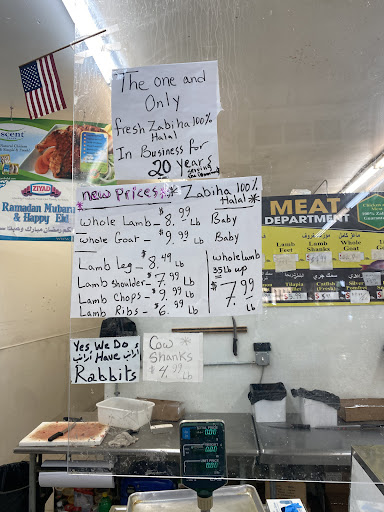 The one and
Only
fresh Zabiha 100%
Halal
In Business for
20 year's
new Prices ** Zabiha 100%
Halal *
Whole Lamb - $8.99 Lb Baby
whole Goat - $9.99 Lb Baby
Lamb Leg - $8.49 Lb
Lamb Shoulder - $7.99 Lb
Lamb Chops - $9.99 Lb
Lamb Ribs - $6.99 Lb
whole lamb
35 Lb up
$7.99 Lb
Yes, We Do
أرانب Have أرانب
Rabbits
Cow *
Shanks
$4.99 Lb
ZIYAD
Ramadan Mubarak
& Happy Eid
MEAT
DEPARTMENT
100% Zabiha
Halal
Lamb
Feet
Lamb
Shanks
Whole
Goat
Tilapia
Catfish
Silver